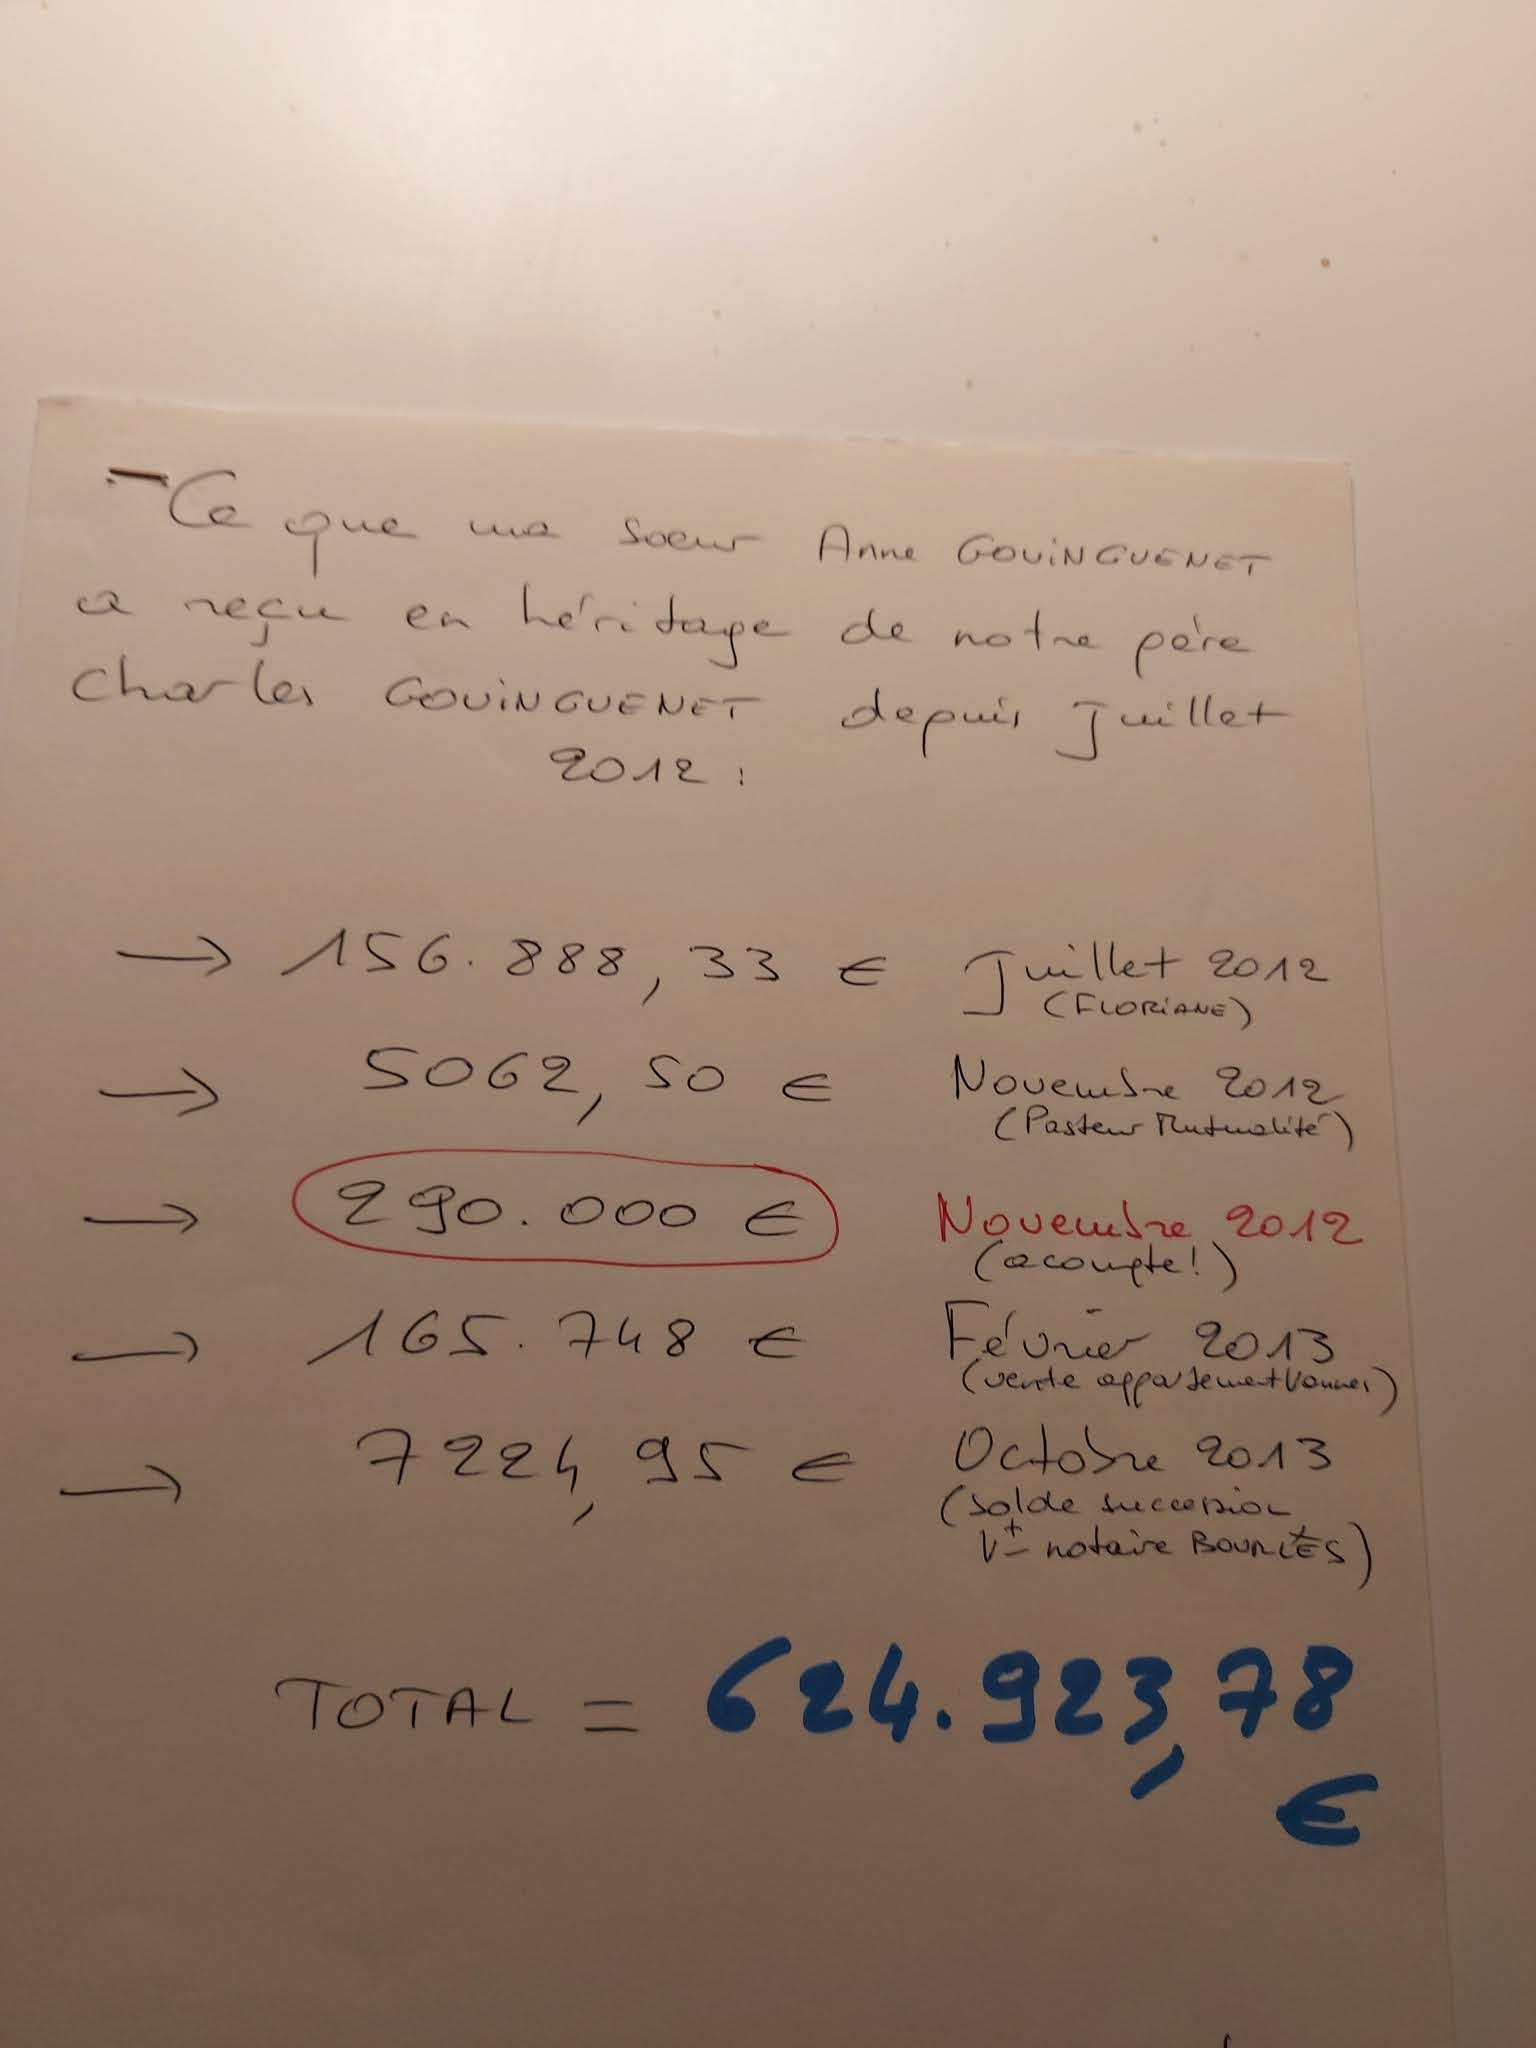 Ce que ma sœur Anne GOUiNGUENET
a reçu en héritage de notre père
Charles GOUiNGUENET depuis Juillet
2012 :
→ 156.888,33 € Juillet 2012
(FLORiANE)
→ 5062,50 € Novembre 2012
(Pasteur Mutualité)
→ 290.000 € Novembre 2012
(acompte!)
→ 165.748 € Février 2013
(vente appartement Vannes)
→ 7224,95 € Octobre 2013
(solde succession
Vt notaire BOURLÈS)
TOTAL = 624.923,78
€